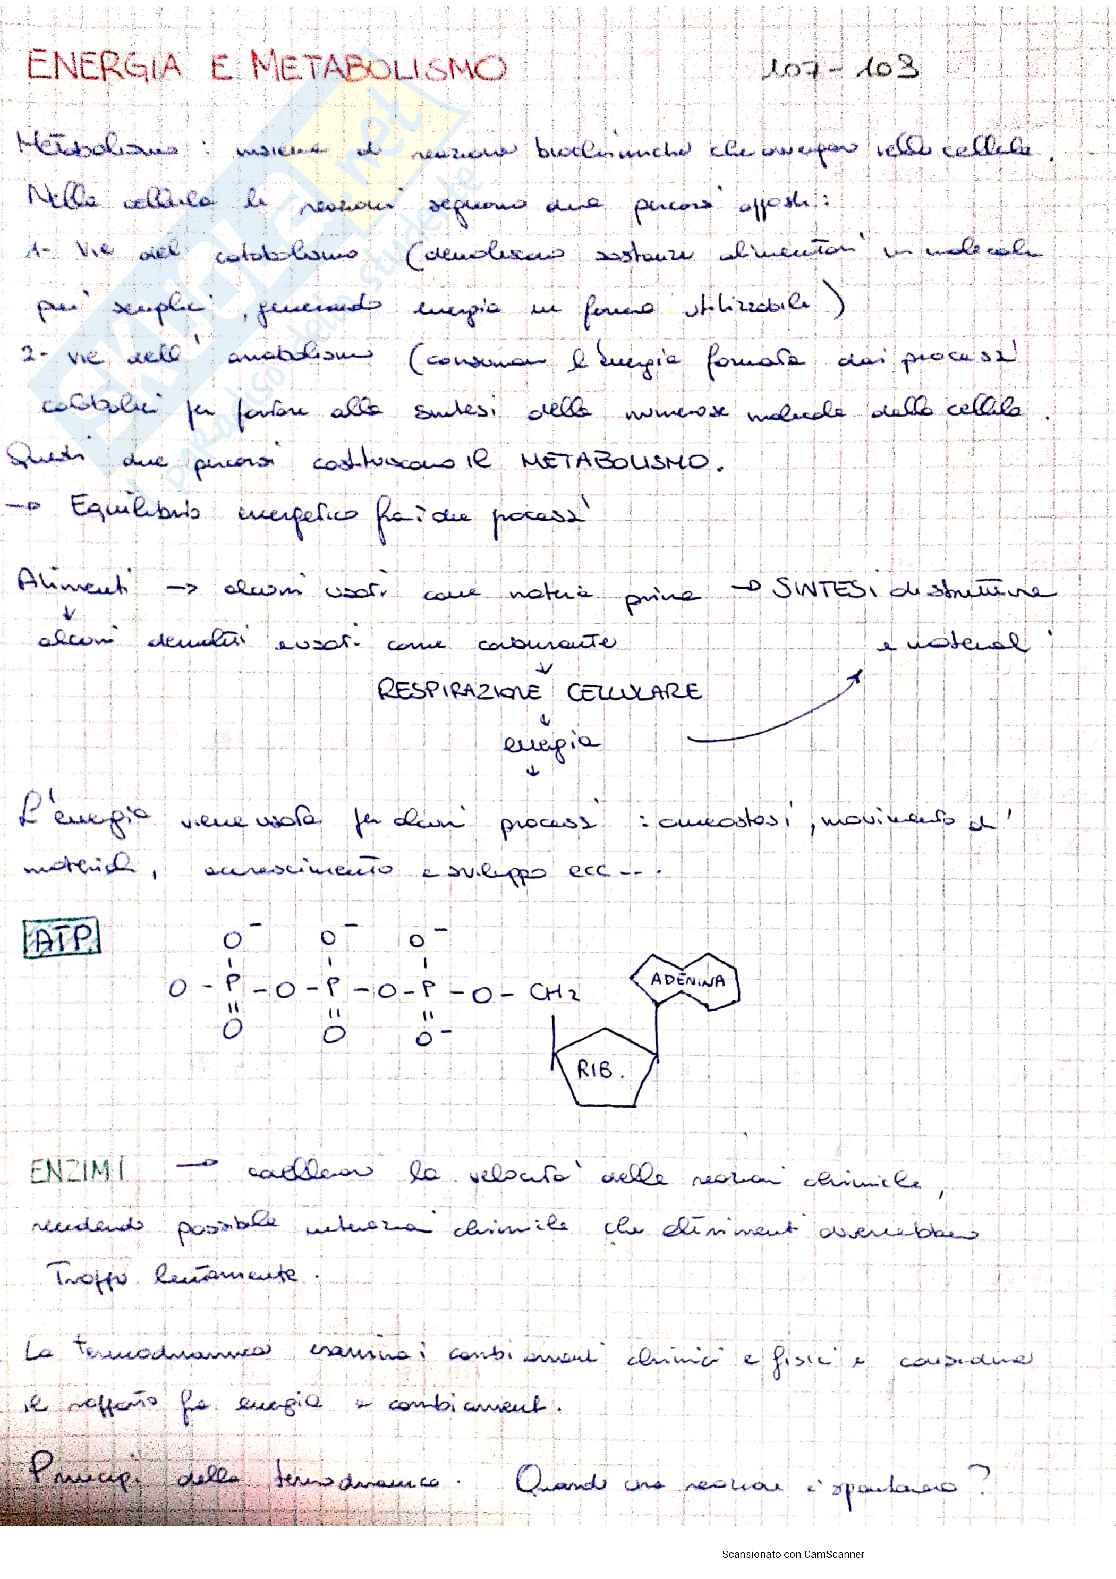 ENERGIA E METABOLISMO 107-109
Metabolismo: insieme di reazioni biochimiche che avvengono nelle cellule.
Nella cellula le reazioni seguono due percorsi opposti:
1- Vie del catabolismo (demoliscono sostanze alimentari in molecole
più semplici, generando energia in forma utilizzabile)
2- vie dell'anabolismo (consumano l'energia formata dai processi
catabolici per portare alla sintesi delle numerose molecole della cellula.
Questi due percorsi costituiscono il METABOLISMO.
→ Equilibrio energetico fra i due processi
Alimenti → alcuni usati come materia prima → SINTESI di strutture
↓
alcuni demoliti e usati come carburante e materiali
↓
RESPIRAZIONE CELLULARE
↓
energia
↓
L'energia viene usata per alcuni processi: omeostasi, movimento di
materiale, accrescimento e sviluppo ecc--.
ATP
O⁻ O⁻ O⁻
O - P - O - P - O - P - O - CH2 ADENINA
O O O⁻
RIB.
ENZIMI → la velocità delle reazioni chimiche,
rendendo possibile interazioni chimiche che altrimenti avverrebbero
Troppo lentamente.
La termodinamica esamina i cambiamenti chimici e fisici e considera
il rapporto fra energia e cambiamenti.
Principi della termodinamica. Quando una reazione è spontanea?
Scansionato con CamScanner